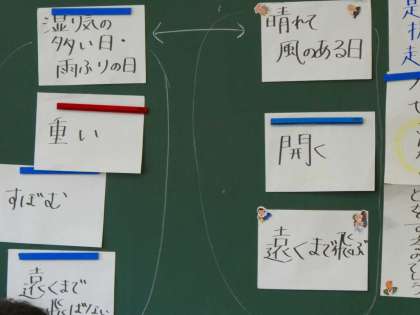 湿り気の
多い日・
雨ふりの日
重い
すぼむ
遠くまで
飛ばない
晴れて
風のある日
開く
遠くまで飛ぶ